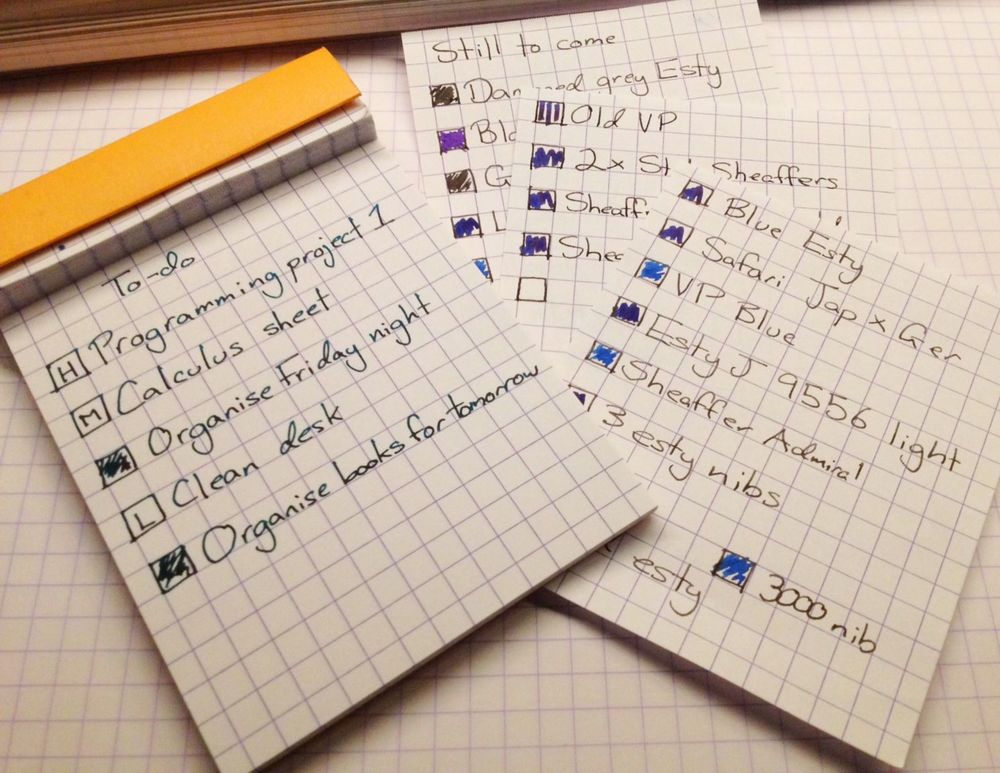 To-do
H Programming project 1
M Calculus sheet
Organise Friday night
L Clean desk
Organise books for tomorrow
Still to come
grey Esty
Old VP
2x St
Sheaffers
Sheaff
Shee
Blue Esty
Safari Jap x Ger
VP Blue
Esty J 9556 light
Sheaffer Admiral
3 esty nibs
esty
3000 nib